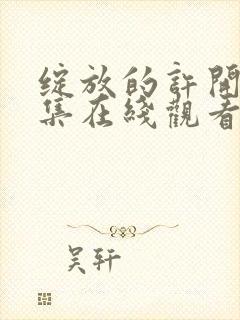 綻放的許開
集在綫觀看
吴轩